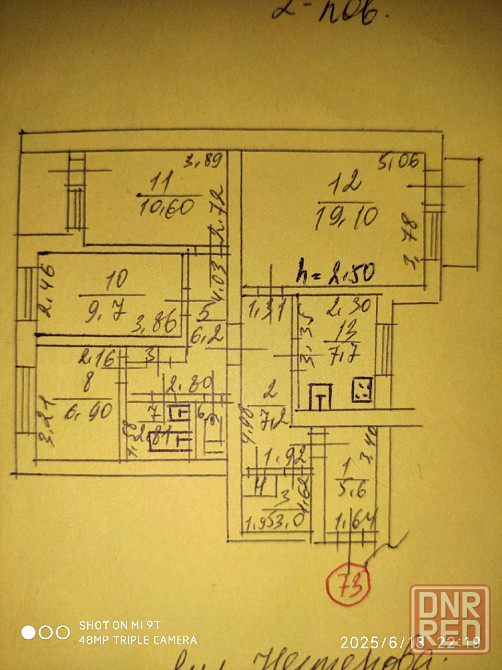 2-пов.
3,89
5,06
11
10,60
2,72
12
19,10
3,78
h=2.50
2,46
10
9,7
3,86
4,03
5
6,2
1,31
2,30
3,35
13
7,7
2,16
3
8
6,90
3,21
2,80
7
2,81
6
2
7,2
4,98
1,92
4
3
3,0
1,95
1,62
1
5,6
3,40
1,64
73
SHOT ON MI 9T
48MP TRIPLE CAMERA
2025/6/18 22:19
DNR
RED